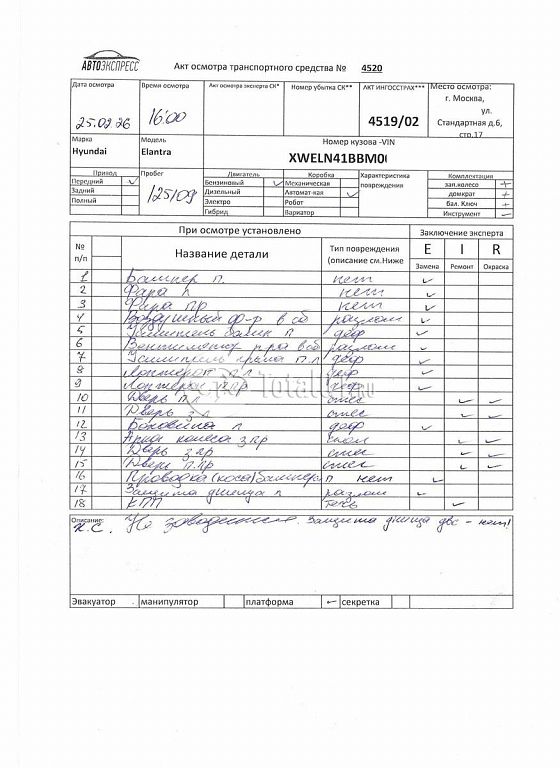 АВТОЭКСПРЕСС
Акт осмотра транспортного средства № 4520
Дата осмотра Время осмотра Акт осмотра эксперта СК* Номер убытка СК** АКТ ИНГОССТРАХ*** Место осмотра:
25.02.26 16:00 4519/02 г. Москва, ул. Стандартная д.6, стр.17
Марка Модель Номер кузова -VIN
Hyundai Elantra XWELN41BBM0
Привод Пробег Двигатель Коробка Характеристика повреждения Комплектация
Передний 125109 Бензиновый Механическая зап.колесо +
Задний Дизельный Автомат-кая домкрат +
Полный Электро Робот бал. Ключ +
Гибрид Вариатор Инструмент
При осмотре установлено Заключение эксперта
№ п/п Название детали Тип повреждения (описание см.Ниже E I R
Замена Ремонт Окраска
1 Бампер п. нет
2 Фара л нет
3 Фара пр нет
4 Воздушный ф-р в сб разлом
5 Усилитель балки п деф
6 в сб разлом
7 Усилитель крыла п.л деф
8 Лонжерон п.л деф
9 Лонжерон п.пр деф
10 Дверь п.л
11 Дверь з.л
12 Боковина л деф
13 Арка колеса з.пр
14 Дверь з.пр
15 Дверь п.пр
16 Проводка (коса) бампера п нет
17 Защита днища п разлом
18 КПП течь
Описание:
Н.С. Не заводится. Защита днища двс - нет!
Эвакуатор манипулятор платформа секретка
Total01.ru